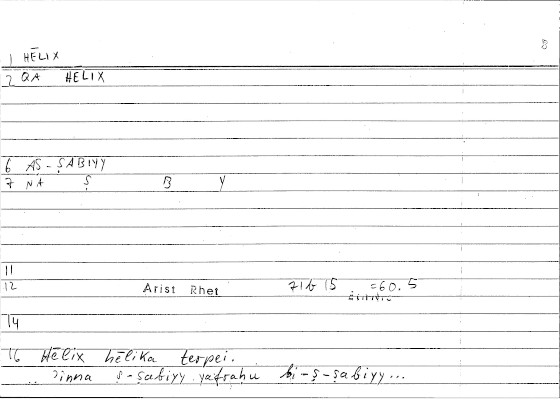 8
1 HĒLIX
2 QA HĒLIX
6 AṢ-ṢABIYY
7 NA Ṣ B Y
11
12 Arist Rhet 71b 15 =60.5
14
16 Hēlix hēlika terpei.
.. ʾinna ṣ-ṣabiyy yafraḥu bi-ṣ-ṣabiyy...